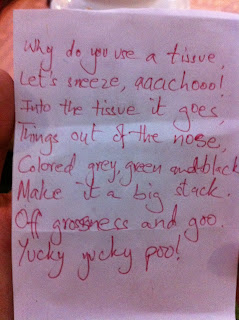 Why do you use a tissue,
Let's sneeze, aaachooo!
Into the tissue it goes,
Things out of the nose,
Colored grey, green and black
Make it a big stack.
Off grossness and goo.
Yucky yucky poo!